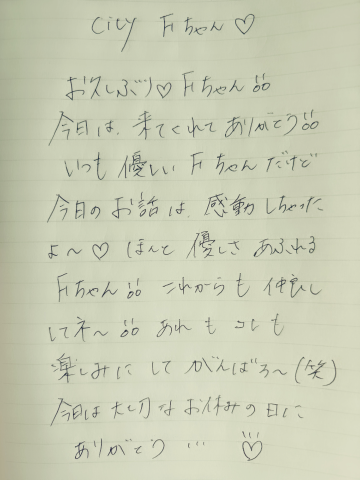 City Fiちゃん♡
お久しぶり♡Fiちゃん!!
今日は、来てくれてありがとう!!
いつも優しいFiちゃんだけど
今日のお話は、感動しちゃった
よ〜♡ ほんと優しさあふれる
Fiちゃん!! これからも仲良し
してネ〜!! あれもコレも
楽しみにしてがんばろ〜(笑)
今日は大切なお休みの日に
ありがとう…♡